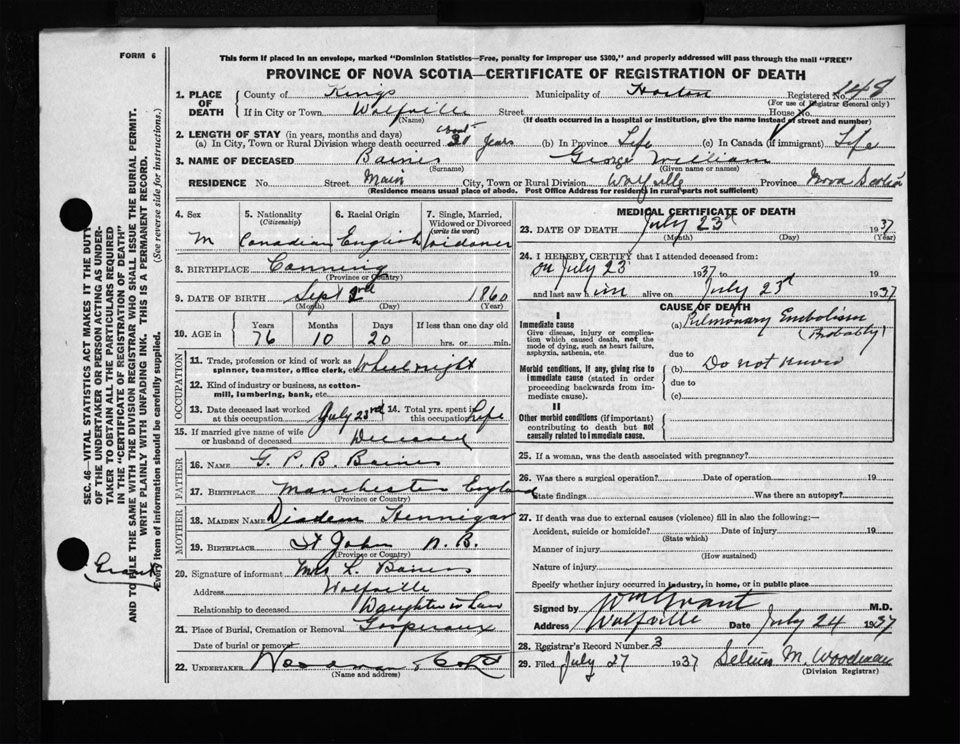 FORM 6
This form if placed in an envelope, marked "Dominion Statistics—Free, penalty for improper use $300," and properly addressed will pass through the mail "FREE"
PROVINCE OF NOVA SCOTIA—CERTIFICATE OF REGISTRATION OF DEATH
1. PLACE OF DEATH County of Kings Municipality of Horton Registered No. 148
(For use of Registrar General only)
If in City or Town Wolfville Street House No.
(Name) (If death occurred in a hospital or institution, give the name instead of street and number)
2. LENGTH OF STAY (in years, months and days)
(a) In City, Town or Rural Division where death occurred about 30 years (b) In Province Life (c) In Canada (if immigrant) Life
3. NAME OF DECEASED Baines George William
(Surname) (Given name or names)
RESIDENCE No. Street Main City, Town or Rural Division Wolfville Province Nova Scotia
(Residence means usual place of abode. Post Office Address for residents in rural parts not sufficient)
4. Sex 5. Nationality (Citizenship) 6. Racial Origin 7. Single, Married, Widowed or Divorced (write the word)
M Canadian English Widower
8. BIRTHPLACE Canning
(Province or Country)
9. DATE OF BIRTH Sept 2nd 1860
(Month) (Day) (Year)
10. AGE in Years Months Days If less than one day old
76 10 20 hrs. or min.
OCCUPATION
11. Trade, profession or kind of work as spinner, teamster, office clerk, etc. Wheelwright
12. Kind of industry or business, as cotton-mill, lumbering, bank, etc.
13. Date deceased last worked at this occupation July 23rd 14. Total yrs. spent in this occupation Life
15. If married give name of wife or husband of deceased Deceased
FATHER
16. NAME G. P. B. Baines
17. BIRTHPLACE Manchester England
(Province or Country)
MOTHER
18. MAIDEN NAME Diadem Hennigar
19. BIRTHPLACE St John N.B.
(Province or Country)
20. Signature of informant Mrs Baines
Address Wolfville
Relationship to deceased Daughter in Law
21. Place of Burial, Cremation or Removal Gaspereaux
Date of burial or removal
22. UNDERTAKER Woodman
(Name and address)
MEDICAL CERTIFICATE OF DEATH
23. DATE OF DEATH July 23rd 1937
(Month) (Day) (Year)
24. I HEREBY CERTIFY that I attended deceased from:
on July 23 1937 to 19
and last saw him alive on July 23rd 1937
CAUSE OF DEATH
I
Immediate cause (a) Pulmonary Embolism
(Probably)
Give disease, injury or complication which caused death, not the mode of dying, such as heart failure, asphyxia, asthenia, etc.
due to
(b) Do not know
Morbid conditions, if any, giving rise to immediate cause (stated in order proceeding backwards from immediate cause).
due to
(c)
II
Other morbid conditions (if important) contributing to death but not causally related to immediate cause.
25. If a woman, was the death associated with pregnancy?
26. Was there a surgical operation? Date of operation 19
State findings Was there an autopsy?
27. If death was due to external causes (violence) fill in also the following:—
Accident, suicide or homicide? Date of injury 19
(State which)
Manner of injury
(How sustained)
Nature of injury
Specify whether injury occurred in industry, in home, or in public place
Signed by Wm Grant M.D.
Address Wolfville Date July 24 1937
28. Registrar's Record Number 3
29. Filed July 27 1937 M. Woodman
(Division Registrar)
SEC. 46—VITAL STATISTICS ACT MAKES IT THE DUTY
OF THE UNDERTAKER OR PERSON ACTING AS UNDER-
TAKER TO OBTAIN ALL THE PARTICULARS REQUIRED
IN THE "CERTIFICATE OF REGISTRATION OF DEATH"
AND TO FILE THE SAME WITH THE DIVISION REGISTRAR WHO SHALL ISSUE THE BURIAL PERMIT.
WRITE PLAINLY WITH UNFADING INK. THIS IS A PERMANENT RECORD.
Every item of information should be carefully supplied. (See reverse side for instructions.)
Grant